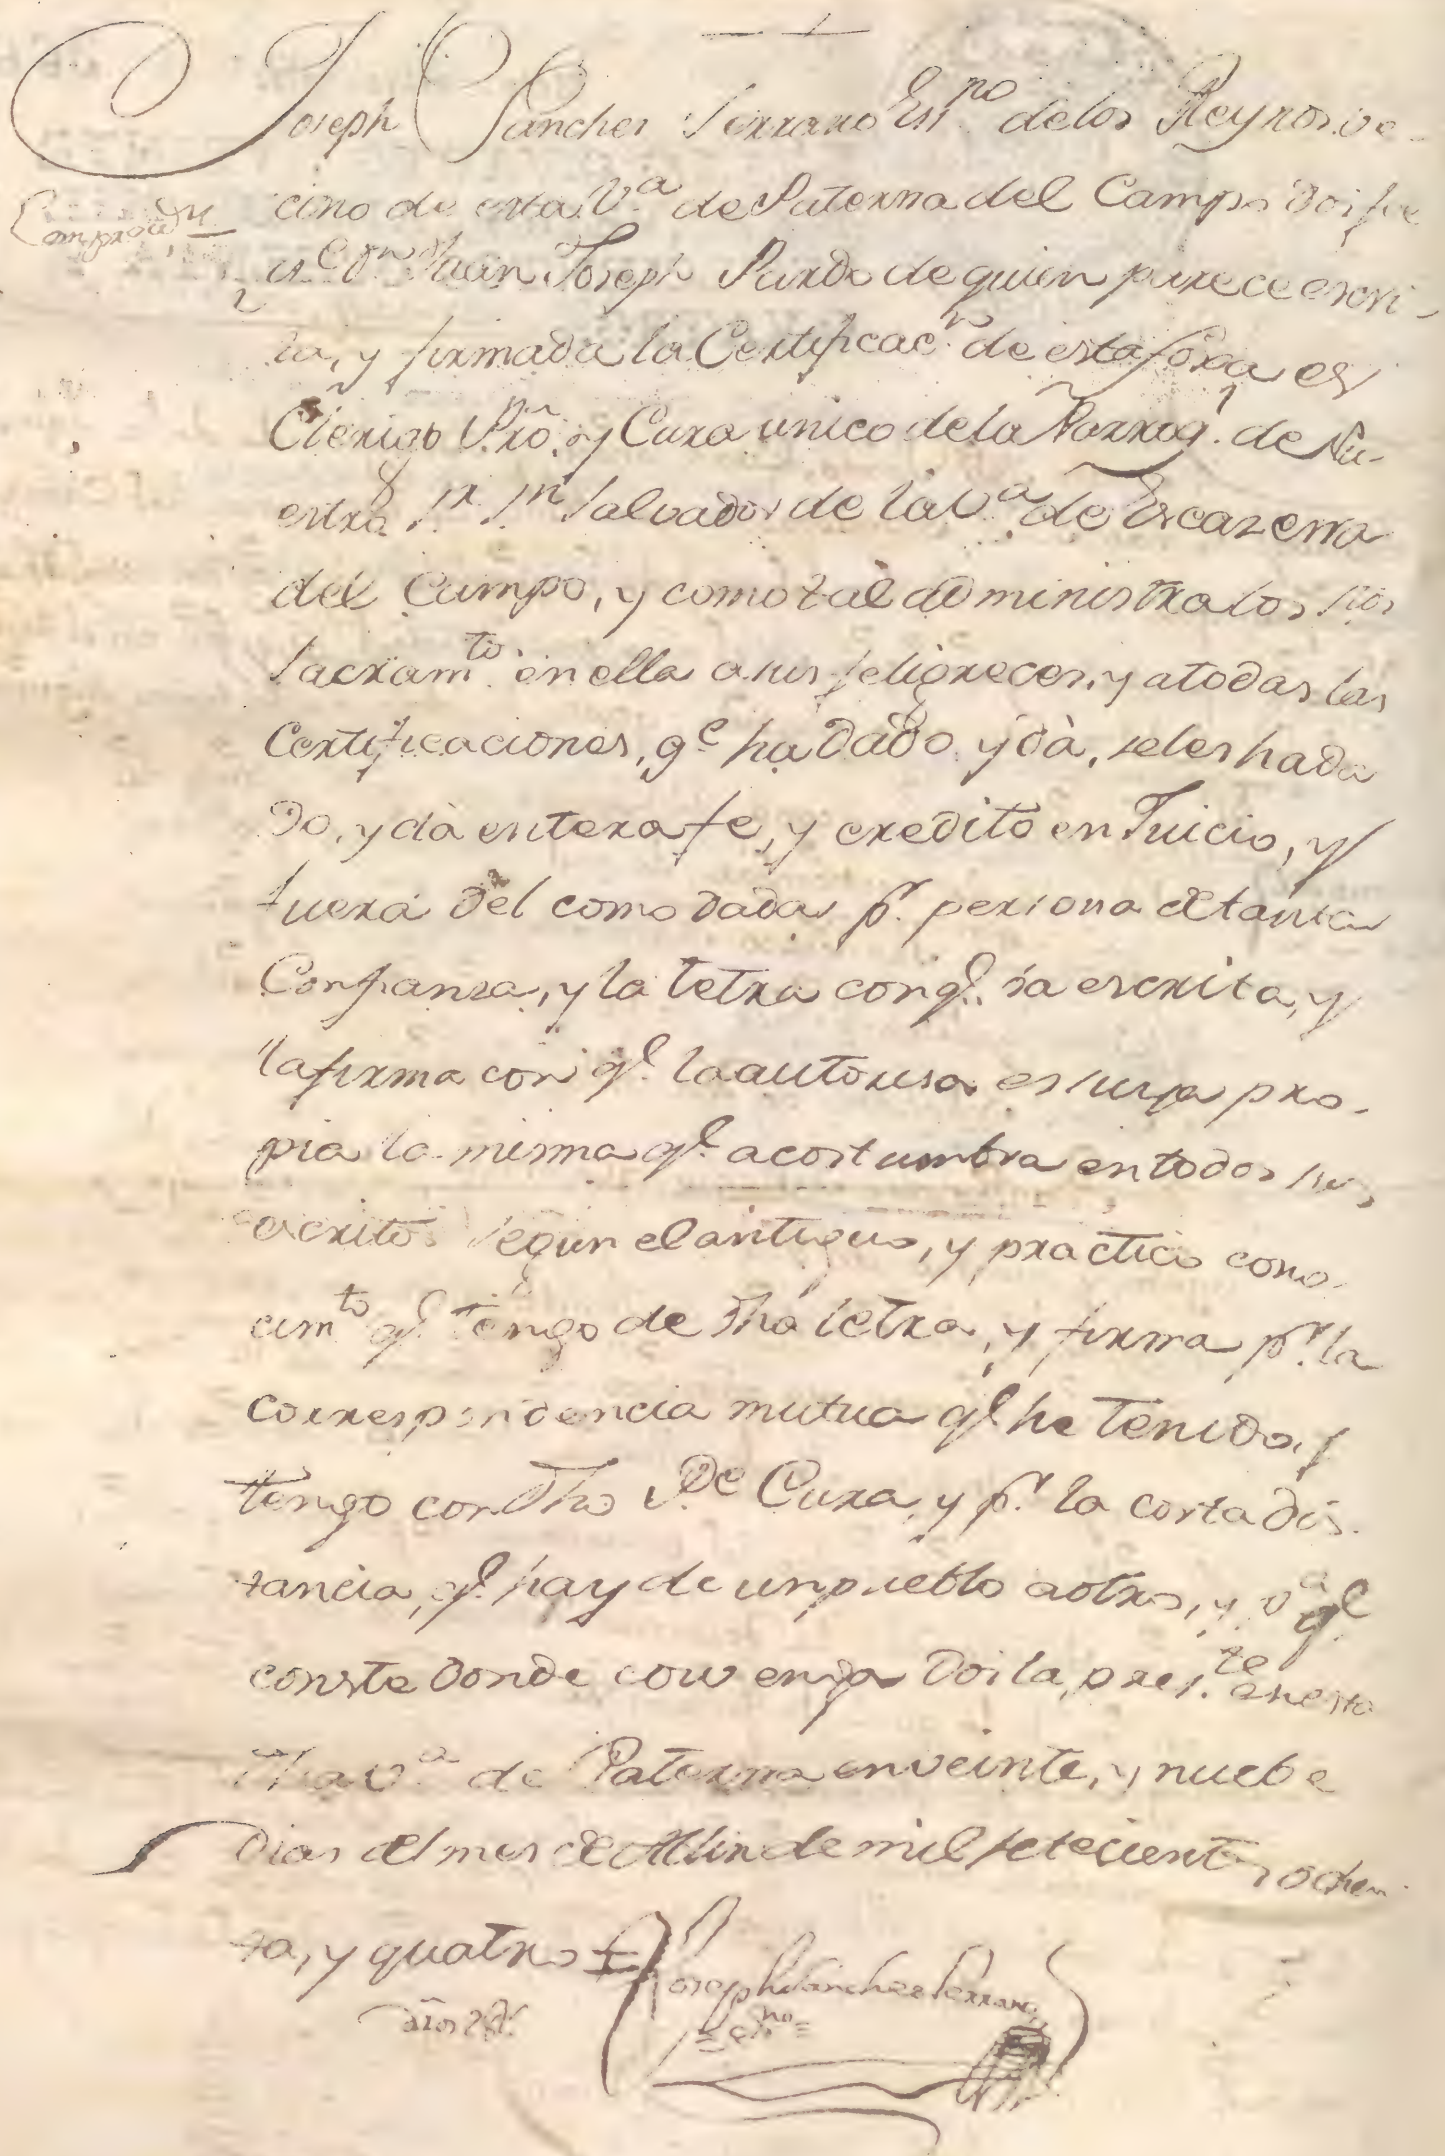 Joseph Sanches Serrano Essno de los Reynos ve-
cino de esta Va de Paterna del Campo Doi fee
qe Dn Juan Joseph Pardo de quien parece escri-
ta, y firmada la Certificacn de esta foxa es
Clerigo Pro. y Cura unico de la Parroql. de Nu-
estro Sr. Sn Salvador de la Va de Escazena
del Campo, y como tal administra los Stos
Sacramtos en ella a sus feligreces, y a todas las
Certificaciones, qe ha dado y dà, se les ha da
do, y dà entera fe, y credito en Juicio, y
fuera del como dadas pr. persona de tanta
Confianza, y la letra con qe. va escrita, y
la firma con qe. la autorisa es suya pro-
pia la misma qe. acostumbra en todos sus
escritos segun el antiguo, y practico cono-
cimto qe. tengo de dha letra, y firma pr. la
correspondencia mutua qe he tenido, y
tengo con dho Pe Cura, y pr. la corta dis-
tancia, qe. hay de un pueblo a otro, y pa qe
conste donde convenga Doi la preste en esta
dha Va de Paterna en veinte, y nuebe
Dias del mes de Abril de mil setecientos ochen-
ta, y quatro
Joseph Sanches Serrano
Esno